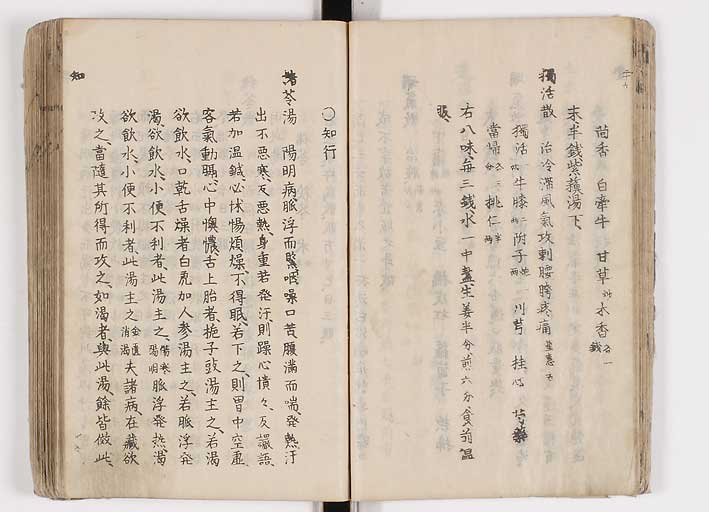 茴香 白牽牛 甘草 木香各一錢
末半錢紫蘓湯下、
獨活散 治冷滞風氣攻刺腰胯疼痛
獨活 牛膝 附子 川芎 桂心
當歸 桃仁
右八味每三錢水一中盞生姜半分煎六分食前温
服、
〇知行
猪苓湯 陽明病脈浮而緊咽噪口苦腹滿而喘発熱汗
出不悪寒、反悪熱、身重若発汗則躁心憒々、反讝語、
若加温鍼、必怵惕煩燥、不得眠、若下之、則胃中空虚、
客氣動膈、心中懊憹、舌上胎者、梔子豉湯主之、若渴
欲飲水、口乾舌燥者白虎加人参湯主之、若脈浮発
渴、欲飲水、小便不利者、此湯主之、陽明脈浮発热渴
欲飲水、小便不利者、此湯主之金匱消渴夫諸病、在藏欲
攻之、當隨其所得而攻之、如渴者、與此湯、餘皆倣此、
知